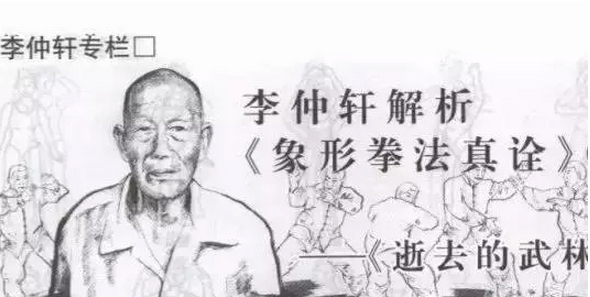 李仲轩专栏□
李仲轩解析
《象形拳法真诠》
——《逝去的武林